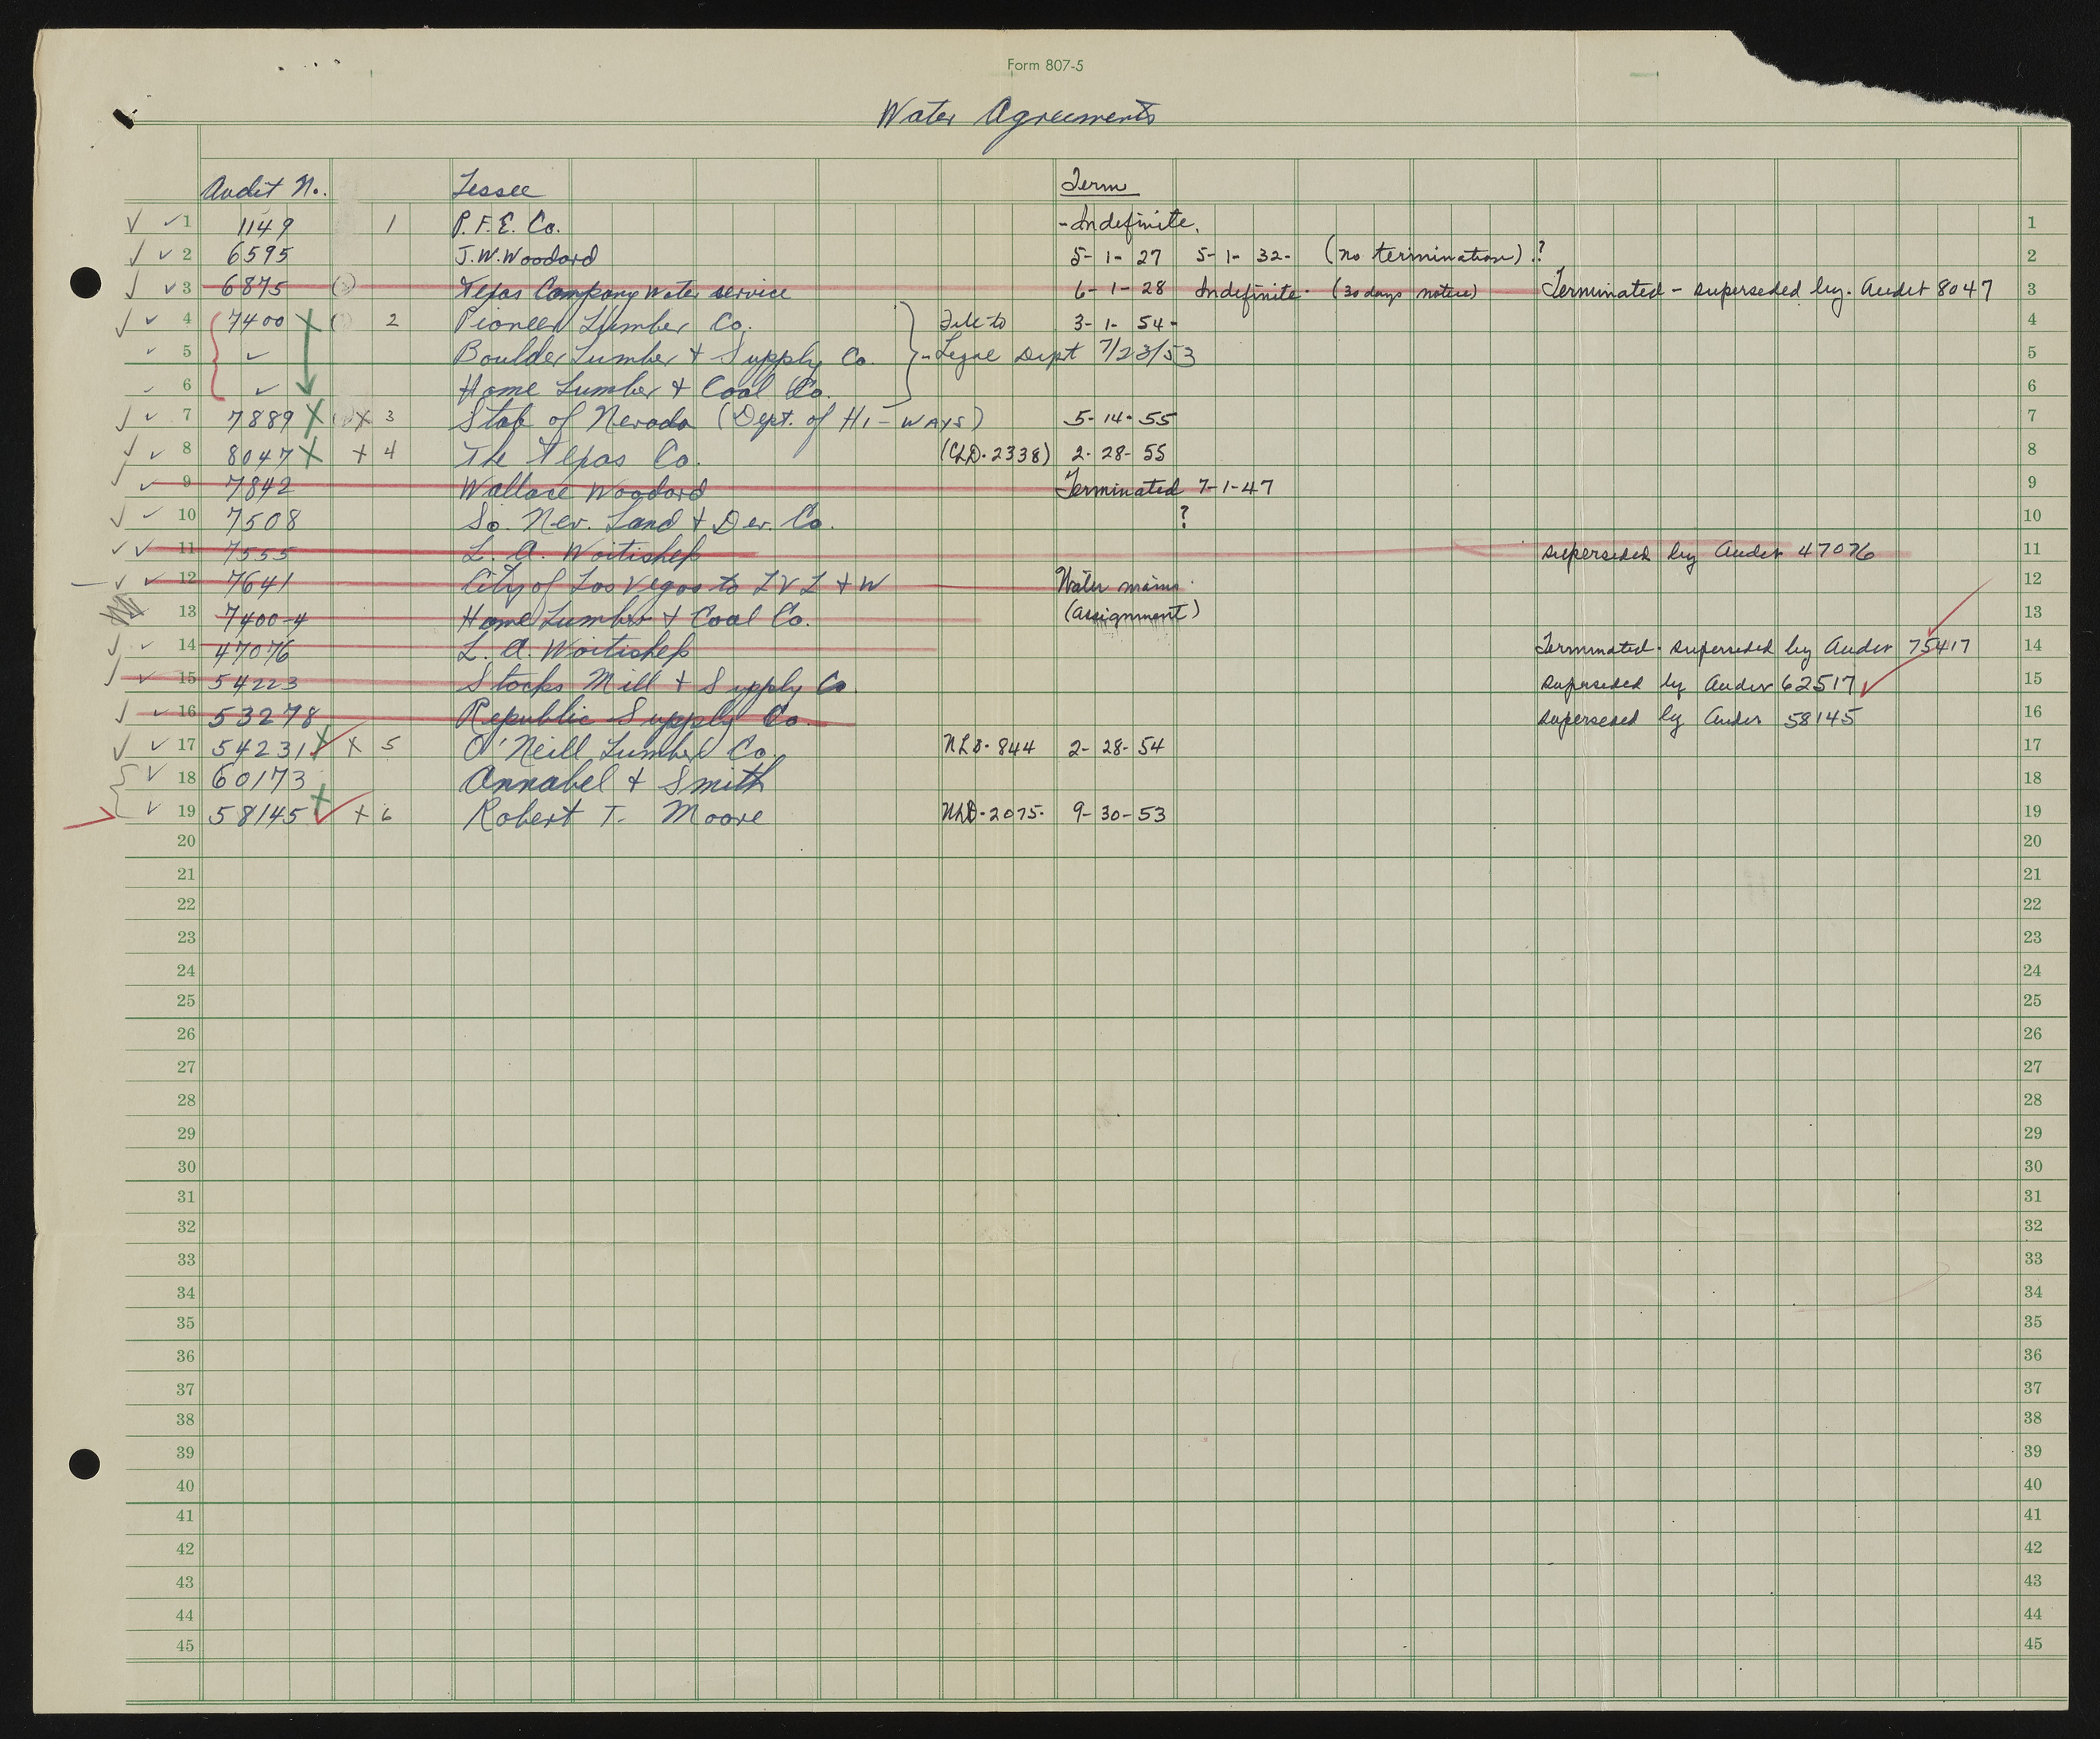 Form 807-5
Water Agreements
Audit No. Lessee Term
1 1149 1 P.F.E. Co. - Indefinite. 1
2 6595 J.W. Woodard 5-1-27 5-1-32- (no termination).? 2
3 6875 Texas Company Water service 6-1-28 Indefinite- (30 days notice) Terminated - superseded by. Audit 8047 3
4 7400 X 2 Pioneer Lumber Co. File to 3-1-54- 4
5 ✓ Boulder Lumber & Supply Co. - Legal Dept 7/23/53 5
6 ✓ Home Lumber & Coal Co. 6
7 7889 X X 3 State of Nevada (Dept. of Hi-ways) 5-14-55 7
8 8047 X + 4 The Texas Co. (CLD-2338) 2-28-55 8
9 7842 Wallace Woodard Terminated 7-1-47 9
10 7508 So. Nev. Land & Dev. Co. ? 10
11 7555 L. A. Woitishek superseded by Audit 47076 11
12 7641 City of Las Vegas to L V L & W Water mains. 12
13 7400-4 Home Lumber & Coal Co. (assignment) 13
14 47076 L. A. Woitishek Terminated. superseded by Audit 75417 14
15 54223 Stocks Mill & Supply Co. superseded by Audit 62517 ✓ 15
16 53278 Republic Supply Co. superseded by Audit 58145 16
17 54231 X X 5 O'Neill Lumber Co. NLD-844 2-28-54 17
18 60173 Annabel & Smith 18
19 58145 X + 6 Robert T. Moore NLD-2075- 9-30-53 19
20 20
21 21
22 22
23 23
24 24
25 25
26 26
27 27
28 28
29 29
30 30
31 31
32 32
33 33
34 34
35 35
36 36
37 37
38 38
39 39
40 40
41 41
42 42
43 43
44 44
45 45